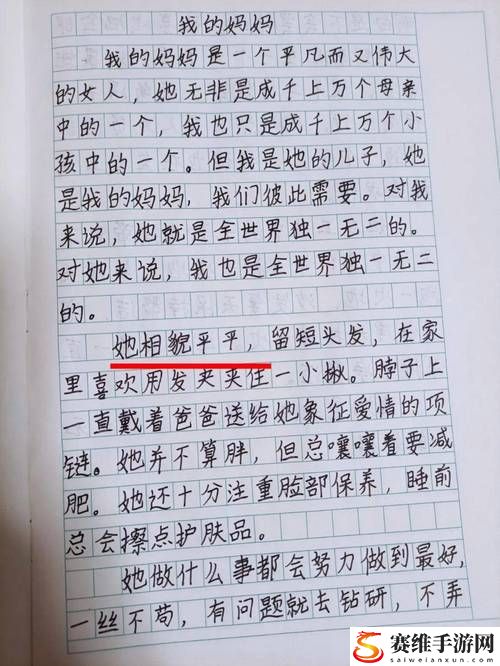 我的妈妈
我的妈妈是一个平凡而又伟大
的女人，她无非是成千上万个母亲
中的一个，我也只是成千上万个小
孩中的一个。但我是她的儿子，她
是我的妈妈，我们彼此需要。对我
来说，她就是全世界独一无二的。
对她来说，我也是全世界独一无二
的。
她相貌平平，留短头发，在家
里喜欢用发夹夹住一小揪。脖子上
一直戴着爸爸送给她象征爱情的项
链。她并不算胖，但总嚷嚷着要减
肥。她还十分注重脸部保养，睡前
总会擦点护肤品。
她做什么事都会努力做到最好，
一丝不苟，有问题就去钻研，不弄
赛维手游网
saiweianxun.com